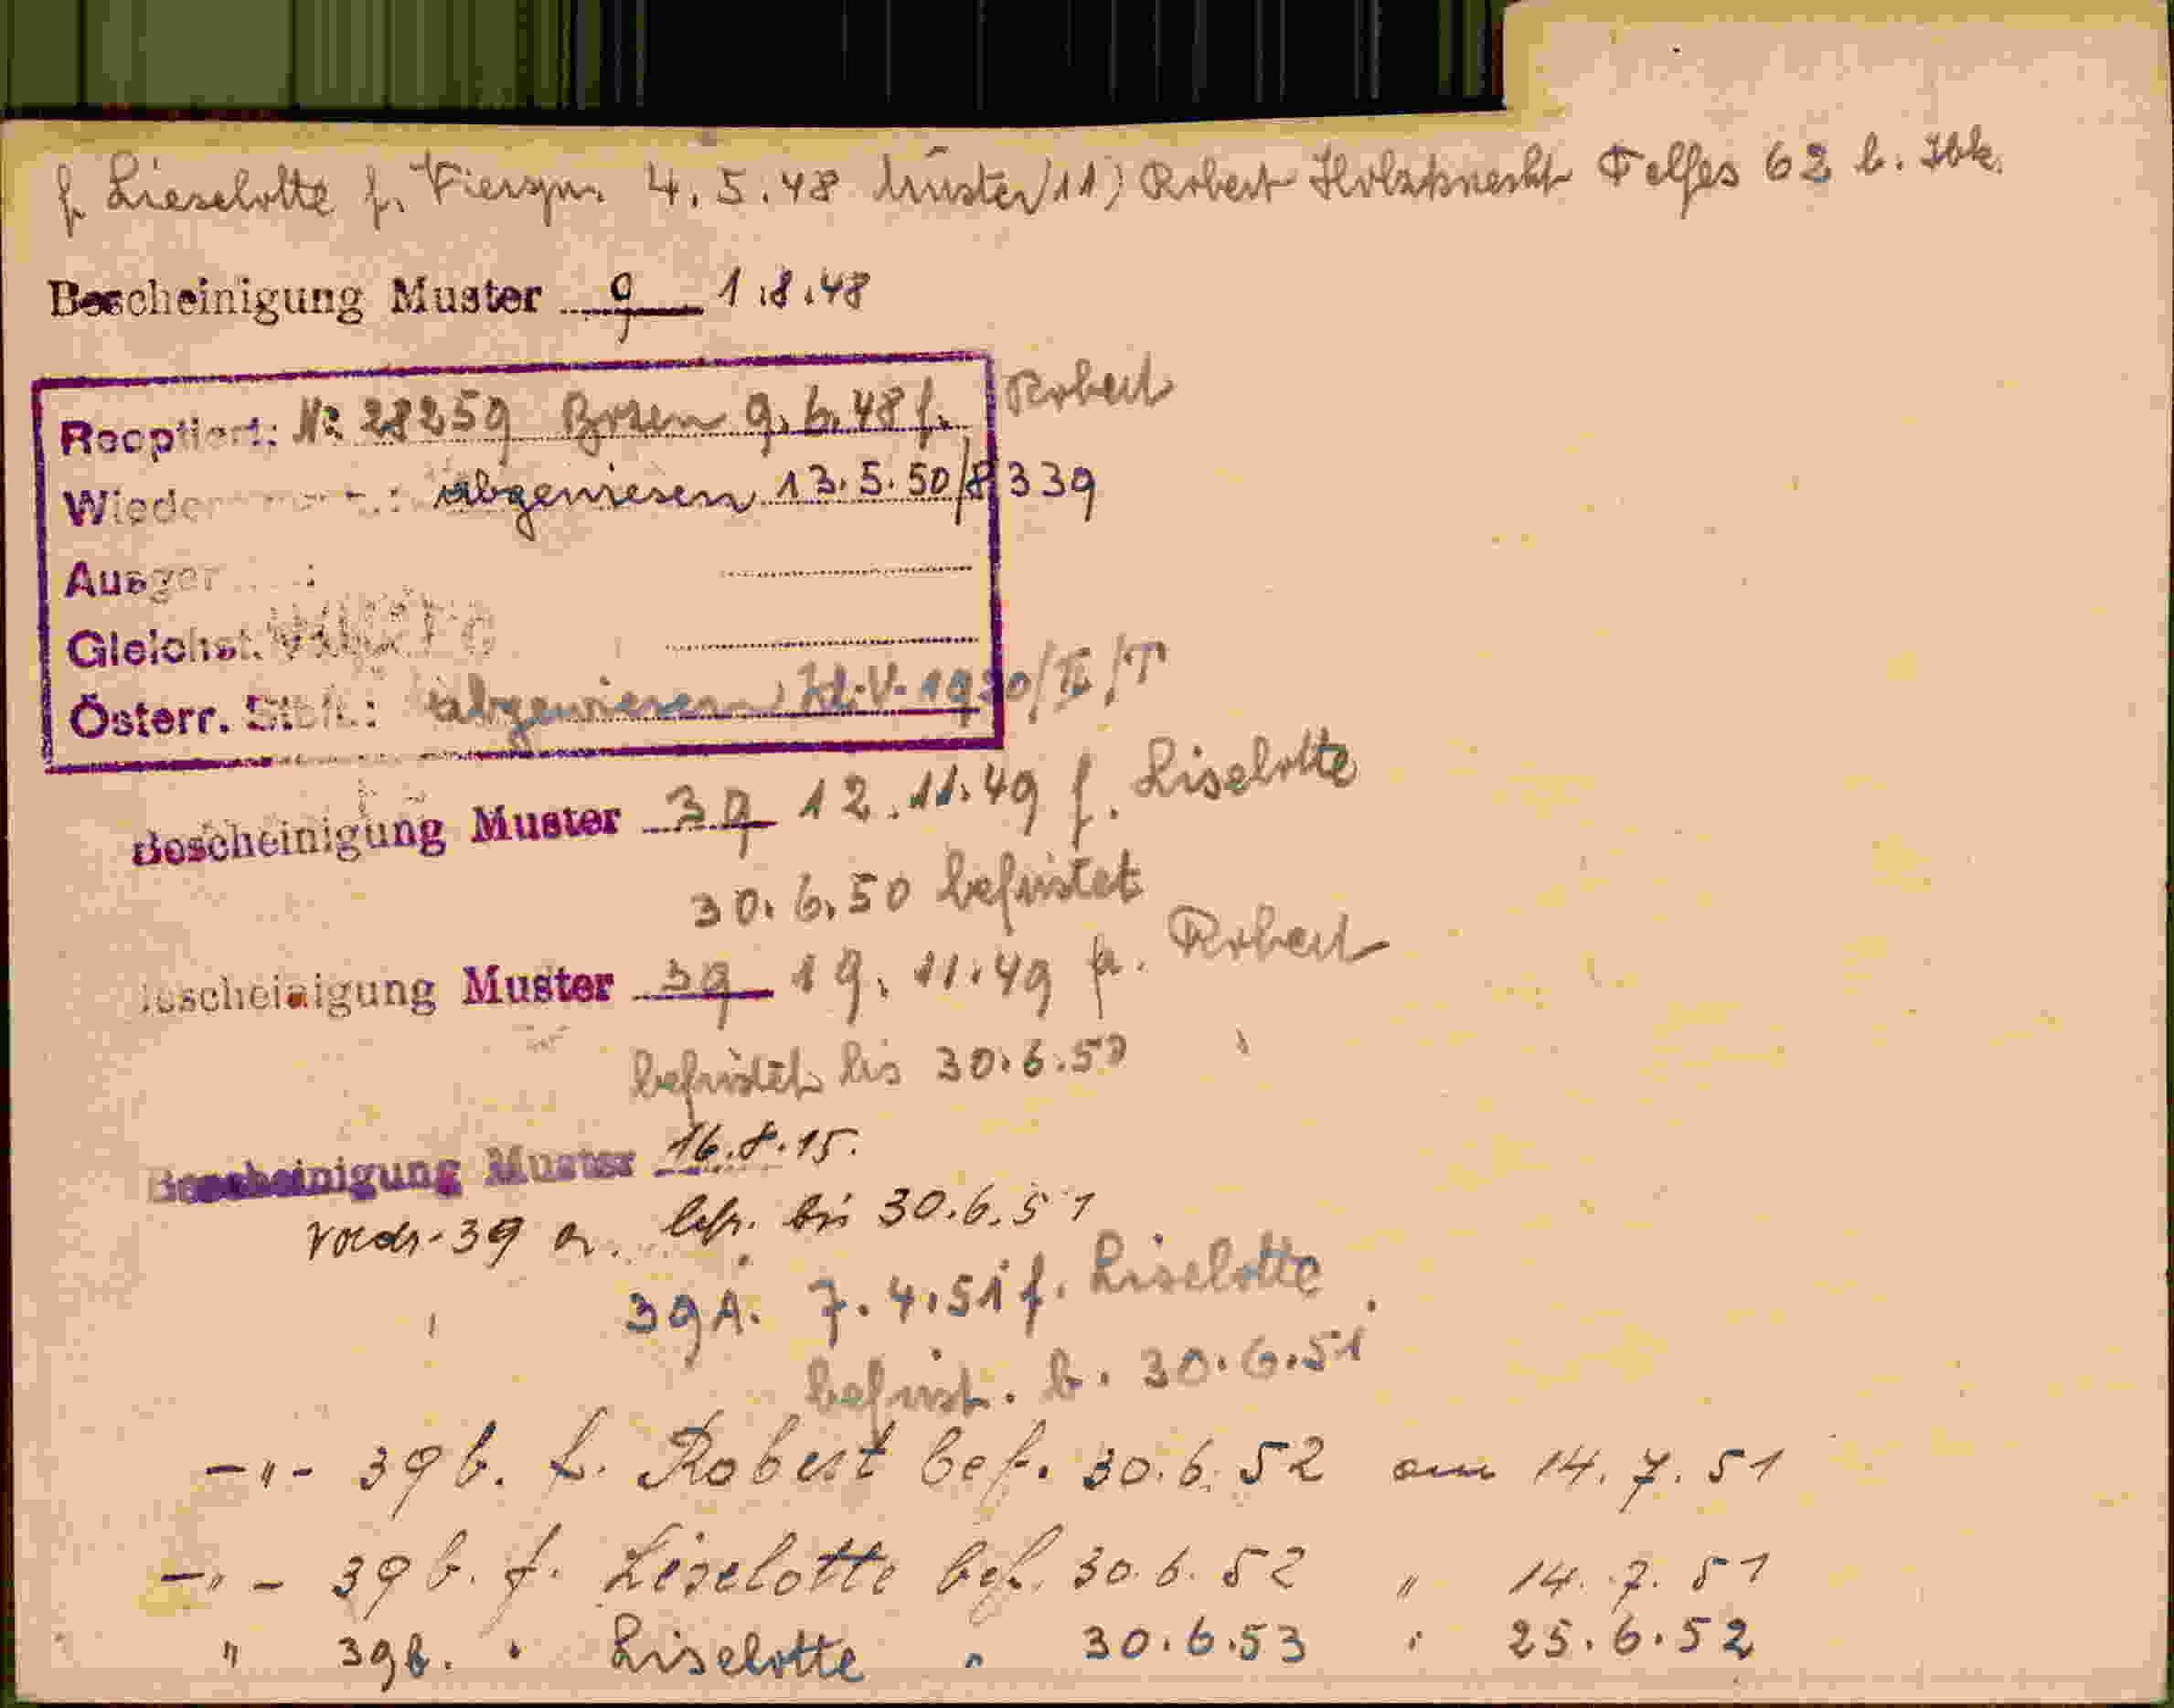 f. Lieselotte f. 4.5.48 Muster 11) Robert Holzknecht Telfes 62 b. Ibk.
Bescheinigung Muster 9 1.8.48
Reoptiert: Nr 28259 Bozen 9.6.48 f. Robert
abgewiesen 13.5.50/8339
Gleichst.
Österr. Stbft.: abgewiesen
Bescheinigung Muster 39 12.11.49 f. Liselotte
30.6.50 befristet
Bescheinigung Muster 39 19.11.49 f. Robert
befristet bis 30.6.50
Bescheinigung Muster 16.8.15.
39 a. bef. bis 30.6.51
39A. 7.4.51 f. Liselotte
befrist. b. 30.6.51
-"- 39 b. f. Robert bef. 30.6.52 am 14.7.51
-"- 39 b. f. Liselotte bef. 30.6.52 " 14.7.51
" 39b. " Liselotte " 30.6.53 " 25.6.52